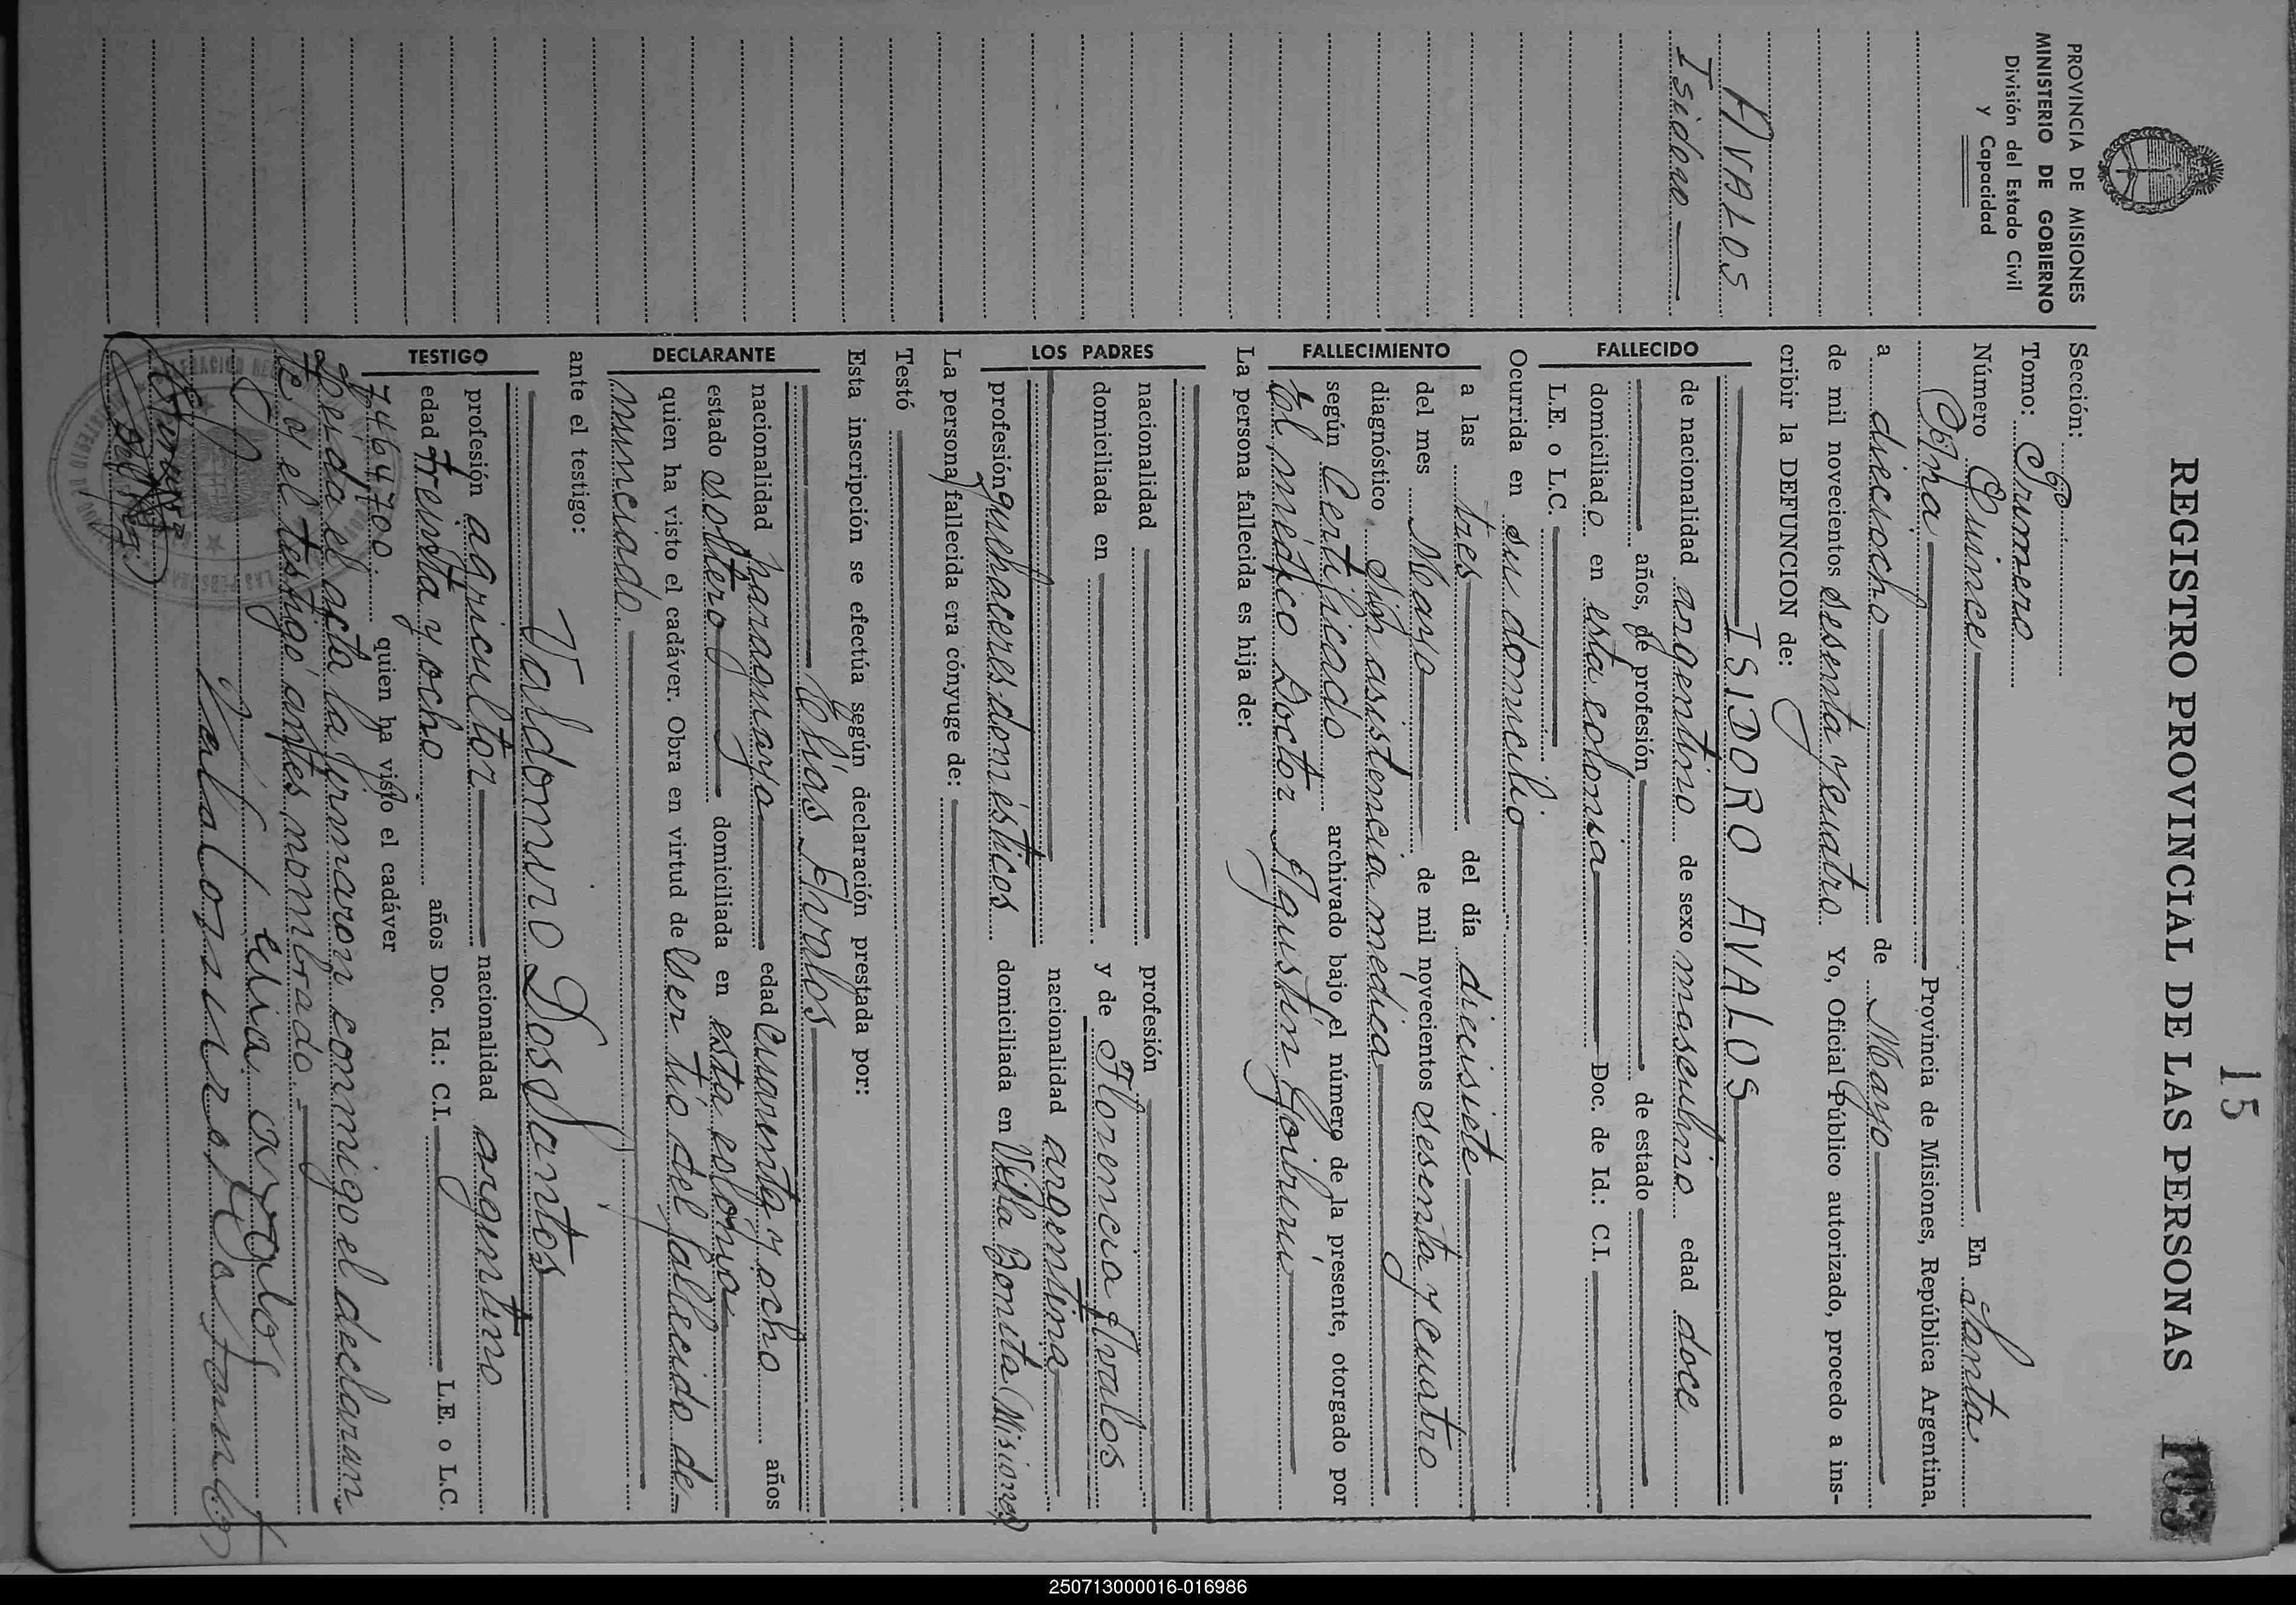 15
REGISTRO PROVINCIAL DE LAS PERSONAS 193
PROVINCIA DE MISIONES
MINISTERIO DE GOBIERNO
División del Estado Civil
y Capacidad
AVALOS
Isidoro
Sección: 6º
Tomo: Primero
Número Quince En Santa
Ana Provincia de Misiones, República Argentina,
a dieciocho de Mayo
de mil novecientos sesenta y cuatro Yo, Oficial Público autorizado, procedo a ins-
cribir la DEFUNCION de:
FALLECIDO
ISIDORO AVALOS
de nacionalidad argentino de sexo masculino edad doce
años, de profesión de estado
domiciliado en esta colonia Doc. de Id.: C.I.
L.E. o L.C.
FALLECIMIENTO
Ocurrida en su domicilio
a las tres del día diecisiete
del mes Mayo de mil novecientos sesenta y cuatro
diagnóstico Sin asistencia médica
según Certificado archivado bajo el número de la presente, otorgado por
El médico Doctor Agustín Goiburu
La persona fallecida es hija de:
LOS PADRES
nacionalidad profesión
domiciliada en y de Florencia Avalos
nacionalidad argentina
profesión quehaceres domésticos domiciliada en Villa Bonita (Misiones)
La persona fallecida era cónyuge de:
Testó
Esta inscripción se efectúa según declaración prestada por:
DECLARANTE
Elías Avalos
nacionalidad paraguayo edad cuarenta y ocho años
estado soltero domiciliada en esta colonia
quien ha visto el cadáver. Obra en virtud de ser tío del fallecido de-
nunciado.
ante el testigo:
TESTIGO
Valdomiro Dos Santos
profesión agricultor nacionalidad argentino
edad treinta y ocho años Doc. Id.: C.I. L.E. o L.C.
7464700. quien ha visto el cadáver
Leída el acta la firmaron conmigo el declaran-
te y el testigo antes nombrado.-
elia avalos
250713000016-016986